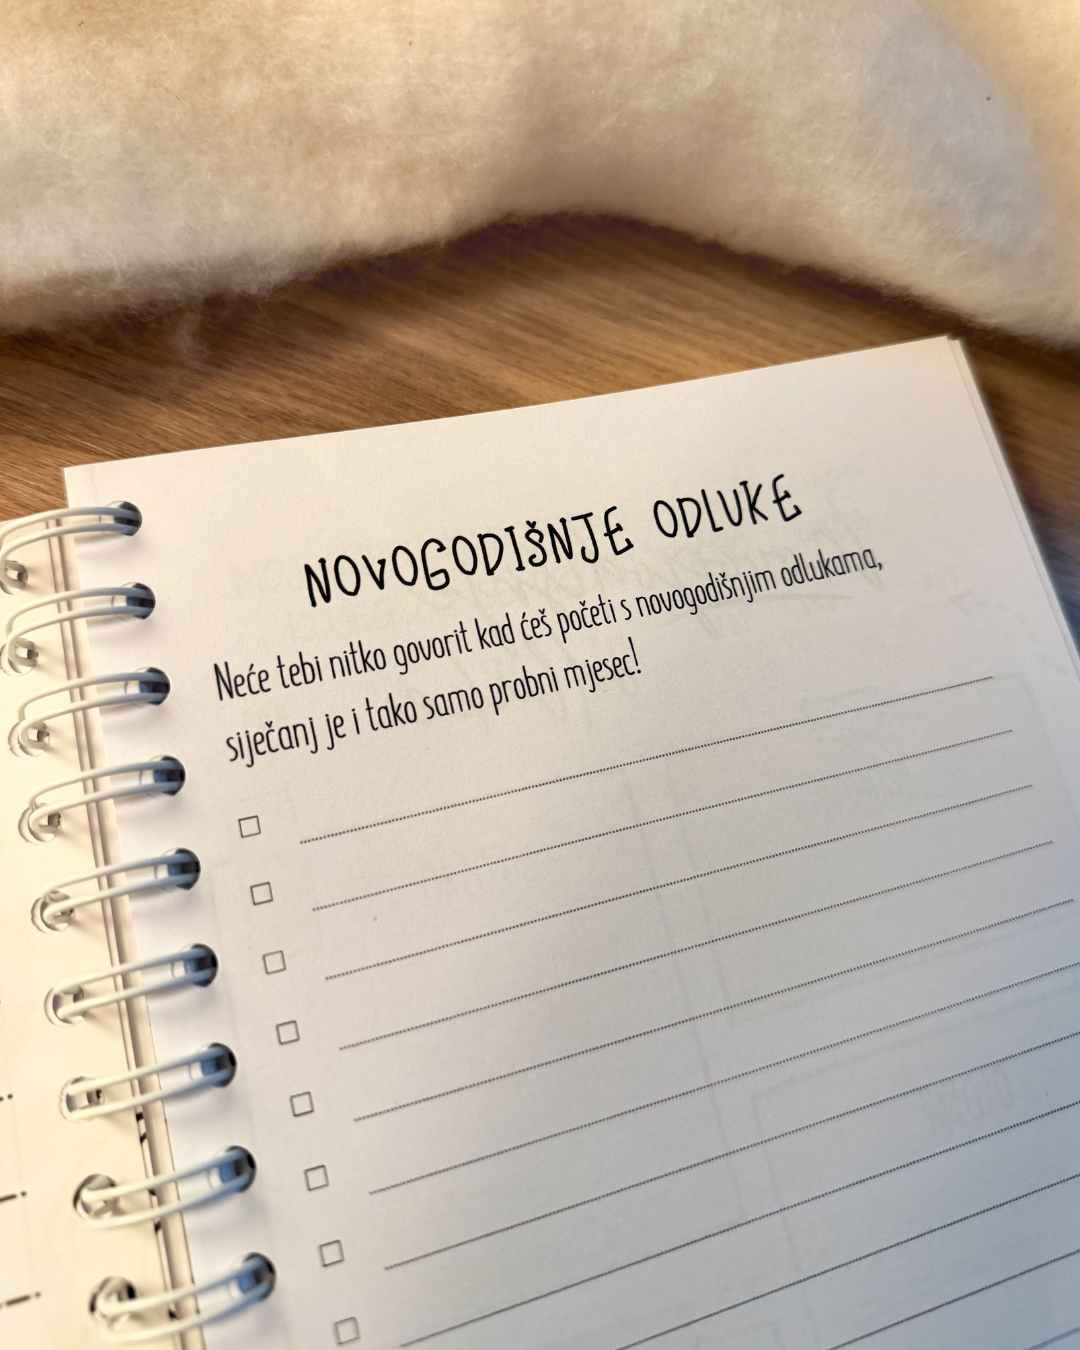 NOVOGODIŠNJE ODLUKE
Neće tebi nitko govorit kad ćeš početi s novogodišnjim odlukama,
siječanj je i tako samo probni mjesec!